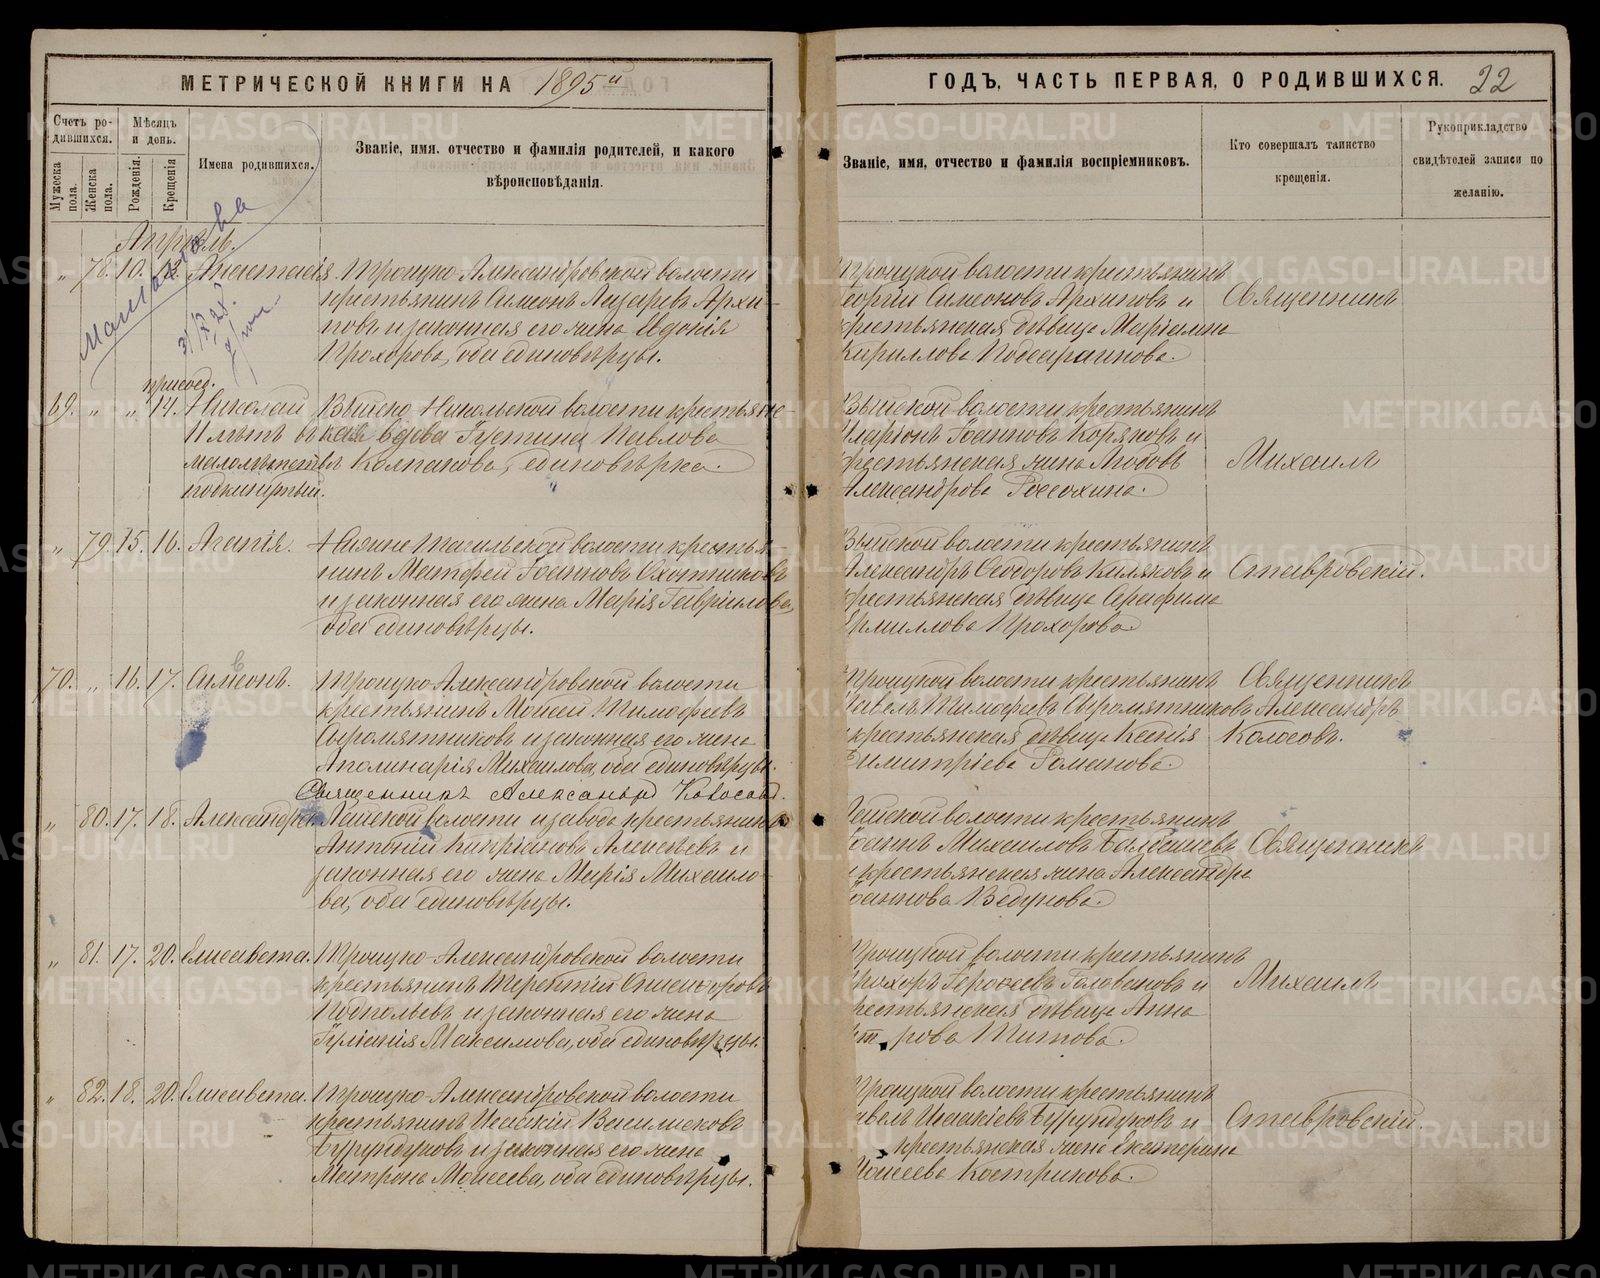 МЕТРИЧЕСКОЙ КНИГИ НА 1895й
ГОДЪ, ЧАСТЬ ПЕРВАЯ, О РОДИВШИХСЯ. 22
Счетъ ро-
дившихся.
Мужеска пола.
Женска пола.
Мѣсяцъ
и день.
Рожденія.
Крещенія
Имена родившихся.
Званіе, имя, отчество и фамилія родителей, и какого
вѣроисповѣданія.
Званіе, имя, отчество и фамилія воспріемниковъ.
Кто совершалъ таинство
крещенія.
Рукоприкладство
свидѣтелей записи по
желанію.
Апрѣль.
" 78. 10. Анастасія Троицко-Александровской волости
крестьянинъ Симеонъ Лазаревъ Архи-
повъ и законная его жена Евдокія
Прохорова, оба единовѣрцы.
Троицкой волости крестьянинъ
Георгій Симеоновъ Архиповъ и
крестьянская дѣвица Маріамна
Кириллова Подсарапнова.
Священникъ
присоед.
69. " " 14. Николай Выйско-Никольской волости крестьян-
ская вдова Густина Павлова
малолѣтствѣ Колпакова, единовѣрка.
подкинутый.
Выйской волости крестьянинъ
Иларіонъ Іоанновъ Коряковъ и
крестьянская жена Любовь
Александрова Россохина.
Михаилъ
" 79. 15. 16. Агапія. Нижне-Тагильской волости крестья-
нинъ Матфей Іоанновъ Охотниковъ
и законная его жена Марія Гавріилова,
оба единовѣрцы.
Выйской волости крестьянинъ
Александръ Ѳеодоровъ Киляковъ и
крестьянская дѣвица Серафима
Ермиллова Прохорова.
Ставровскій.
70. " 16. 17. Симеонъ. Троицко-Александровской волости
крестьянинъ Моисей Тимофеевъ
Сыромятниковъ и законная его жена
Аполинарія Михаилова, оба единовѣрцы.
Священникъ Александръ Колосовъ.
Троицкой волости крестьянинъ
Павелъ Тимофеевъ Сыромятниковъ
и крестьянская дѣвица Ксенія
Димитріева Романова.
Священникъ
Александръ
Колосовъ.
" 80. 17. 18. Александра Лайской волости и завода крестьянинъ
Антоній Кипріановъ Алексѣевъ и
законная его жена Марія Михаило-
ва, оба единовѣрцы.
Лайской волости крестьянинъ
Іоаннъ Михаиловъ Балдашевъ
и крестьянская жена Александра
Іоаннова Ведунова.
Священникъ
" 81. 17. 20. Елисавета. Троицко-Александровской волости
крестьянинъ Терентій
и законная его жена
Іуліанія Максимова, оба единовѣрцы.
Троицкой волости крестьянинъ
Прохоръ Головановъ и
крестьянская дѣвица Анна
Титова.
Михаилъ
" 82. 18. 20. Елисавета. Троицко-Александровской волости
крестьянинъ Исаакій
Бурундуковъ и законная его жена
Матрона Моисеева, оба единовѣрцы.
Троицкой волости крестьянинъ
Павелъ Исаакіевъ Бурундуковъ и
крестьянская жена Екатерина
Моисеева Кострикова.
Ставровскій.
METRIKI.GASO-URAL.RU